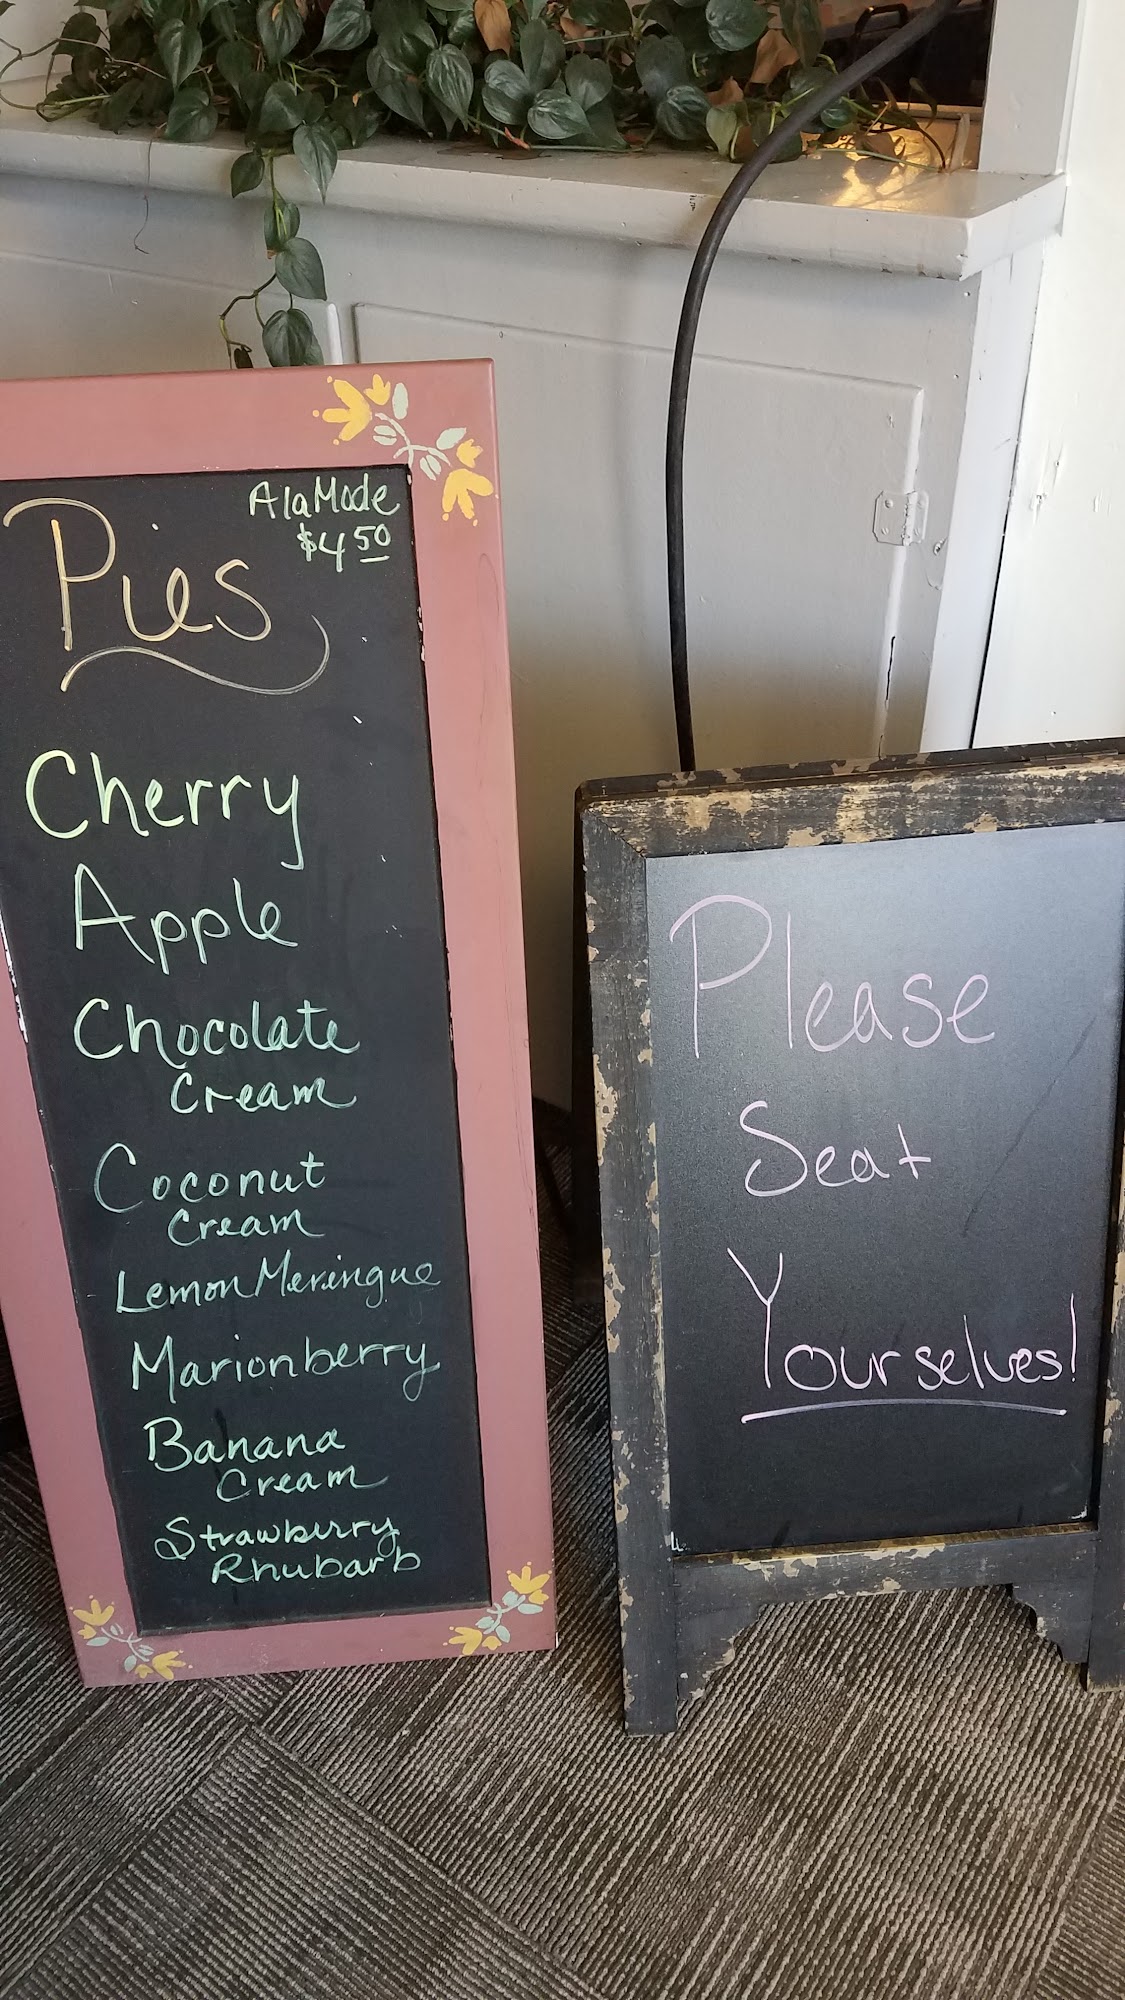 AlaMode
$4.50
Pies
Cherry
Apple
Chocolate
Cream
Coconut
Cream
Lemon Meringue
Marionberry
Banana
Cream
Strawberry
Rhubarb
Please
Seat
Yourselves!